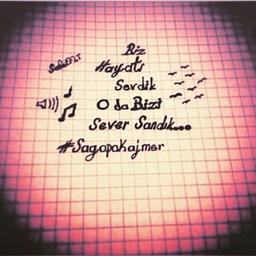 Biz
Hayatı
Sevdik
O da Bizi
Sever Sandık...
#Sagopakajmer